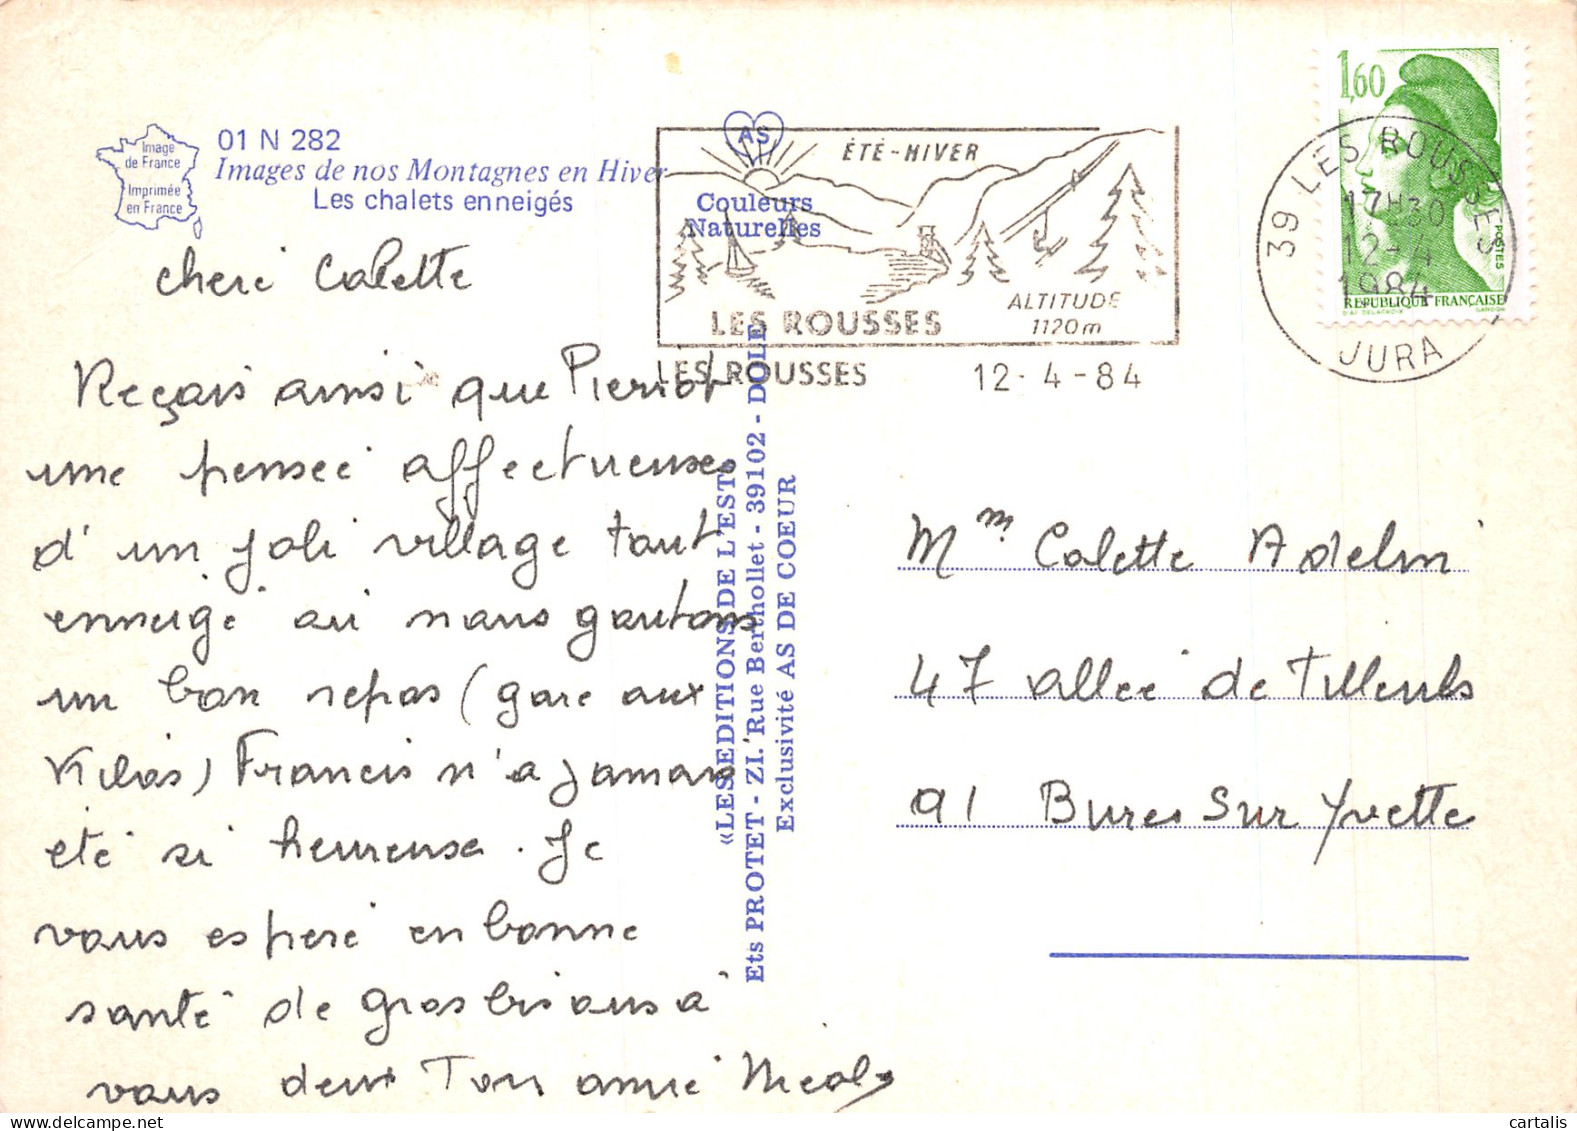 Image
de France
Imprimée
en France
01 N 282
Images de nos Montagnes en Hiver
Les chalets enneigés
AS
Couleurs
Naturelles
ÉTÉ-HIVER
LES ROUSSES
ALTITUDE
1120m
LES ROUSSES
12-4-84
1,60
POSTES
REPUBLIQUE FRANÇAISE
D'AP. DELACROIX
GANDON
39 LES ROUSSES
17H30
12-4
1984
JURA
cheri Colette
Reçois ainsi que Pierrot
une pensée affectueuses
d'un joli village tout
enneigé ou nous goutons
un bon repas (gare aux
Kilos) Francis n'a jamais
été si heureuse. Je
vous espère en bonne
santé de gros bisous à
vous deux Ton amie
«LES EDITIONS DE L'EST»
Ets PROTET - ZI. Rue Berthollet - 39102 - DOLE
Exclusivité AS DE COEUR
Mme Colette Adelin
47 allée de Tilleuls
91 Bures Sur Yvette
cartalis
delcampe.net